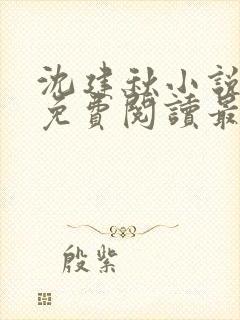 沈建秋小說
免費閱讀最
殷紫